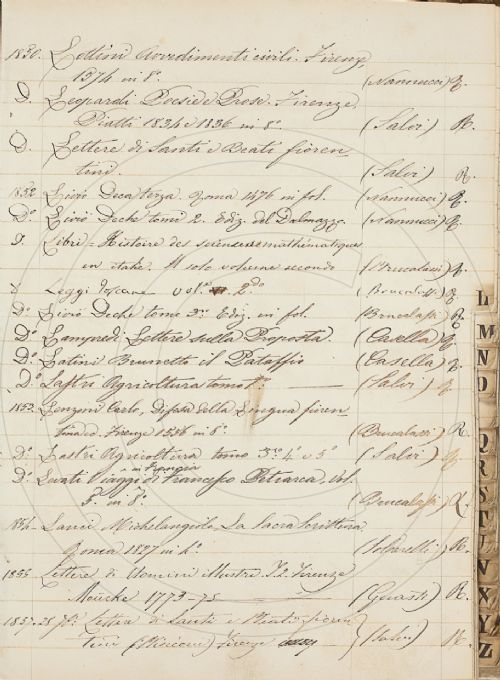 1850. Lottini Avvedimenti civili. Firenze,
1574 in 8º. (Nannucci) R.
D. Leopardi Poesie e Prose. Firenze.
Piatti 1834 e 1836 in 8º. (Salvi) R.
D. Lettere di Santi e Beati fioren-
tini. (Salvi) R.
1852. Livio Deca terza. Roma 1476 in fol. (Nannucci) R.
Dº Livio Deche tomi 2. Ediz. del Dalmazzo. (Nannucci) R.
D. Libri = Histoire des sciences mathématiques
en italie. Il solo volume secondo (Brucalassi) R.
Leggi Toscane vol. 2do (Brucalassi) R.
Dº Livio Deche tomo 3º. Ediz. in fol. (Brucalassi) R.
Dº Lampredi Lettere sulla Proposta. (Casella) R.
Dº Latini Brunetto il Pataffio (Casella) R.
Dº Lastri Agricoltura tomo (Salvi) R.
1853. Lenzoni Carlo, Difesa della Lingua fioren-
tina ed. Firenze 1556 in 8º. (Brucalassi) R.
Dº Lastri Agricoltura tomo 3º. 4º e 5º (Salvi) R.
in Francia
Dº Levati Viaggi di Francesco Petrarca, Vol.
5. in 8º. (Brucalassi) R.
Lanci Michelangiolo, La Sacra Scrittura
Roma 1827 in 4º. R.
Lettere di Uomini illustri. Firenze
Moücke 1773-75 (Guasti) R.
Lettere di Santi e Beati fioren
tini Firenze (Salvi) R.
L
M
N
O
Q
R
S
T
V
X
Y
Z